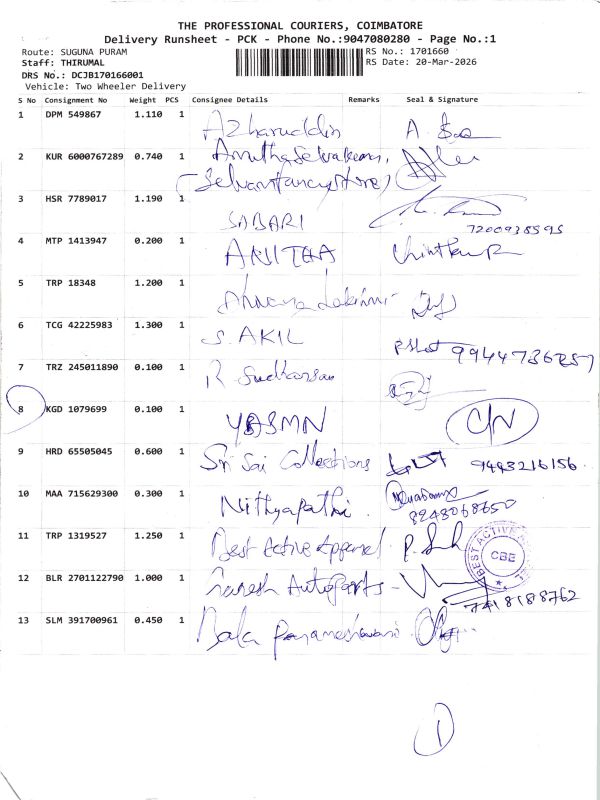 THE PROFESSIONAL COURIERS, COIMBATORE
Delivery Runsheet - PCK - Phone No.:9047080280 - Page No.:1
Route: SUGUNA PURAM RS No.: 1701660
Staff: THIRUMAL RS Date: 20-Mar-2026
DRS No.: DCJB170166001
Vehicle: Two Wheeler Delivery
S No Consignment No Weight PCS Consignee Details Remarks Seal & Signature
1 DPM 549867 1.110 1 Azharuddin
2 KUR 6000767289 0.740 1
3 HSR 7789017 1.190 1 SABARI 7200938595
4 MTP 1413947 0.200 1 ANITHA
5 TRP 18348 1.200 1
6 TCG 42225983 1.300 1 S. AKIL
7 TRZ 245011890 0.100 1
8 KGD 1079699 0.100 1 YASMN C/N
9 HRD 65505045 0.600 1 Sri Sai Collections 9493216156
10 MAA 715629300 0.300 1 Nithyapathi
11 TRP 1319527 1.250 1 Best Active Apparel BEST ACTIVE CBE
12 BLR 2701122790 1.000 1 AutoParts 7418188762
13 SLM 391700961 0.450 1 Bala Parameshwari
1